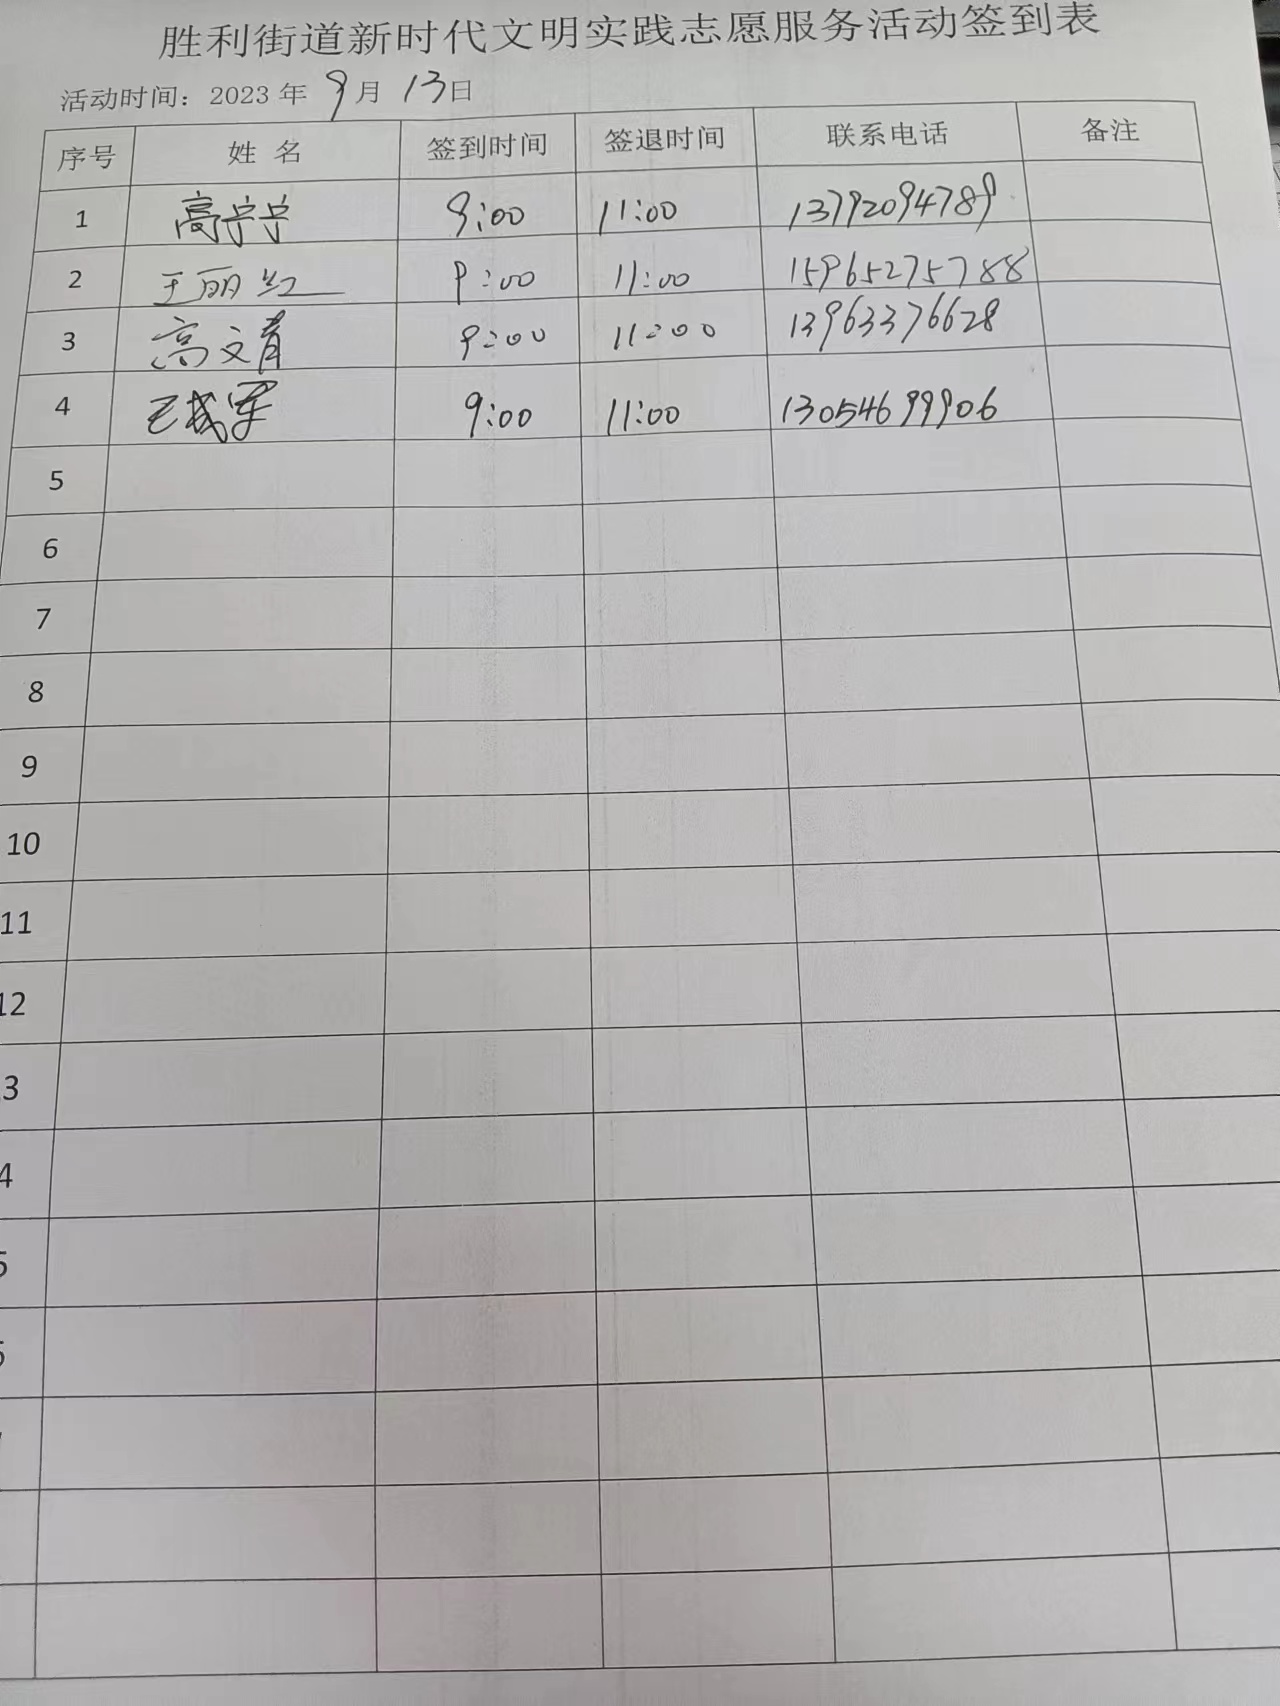 胜利街道新时代文明实践志愿服务活动签到表
活动时间：2023 年 9 月 13 日
序号 姓 名 签到时间 签退时间 联系电话 备注
1 高宁宁 9:00 11:00 13792094789
2 王丽红 9:00 11:00 15965275788
3 高文青 9:00 11:00 13963376628
4 王成军 9:00 11:00 13054699906
5
6
7
8
9
10
11
12
3
4
5
6